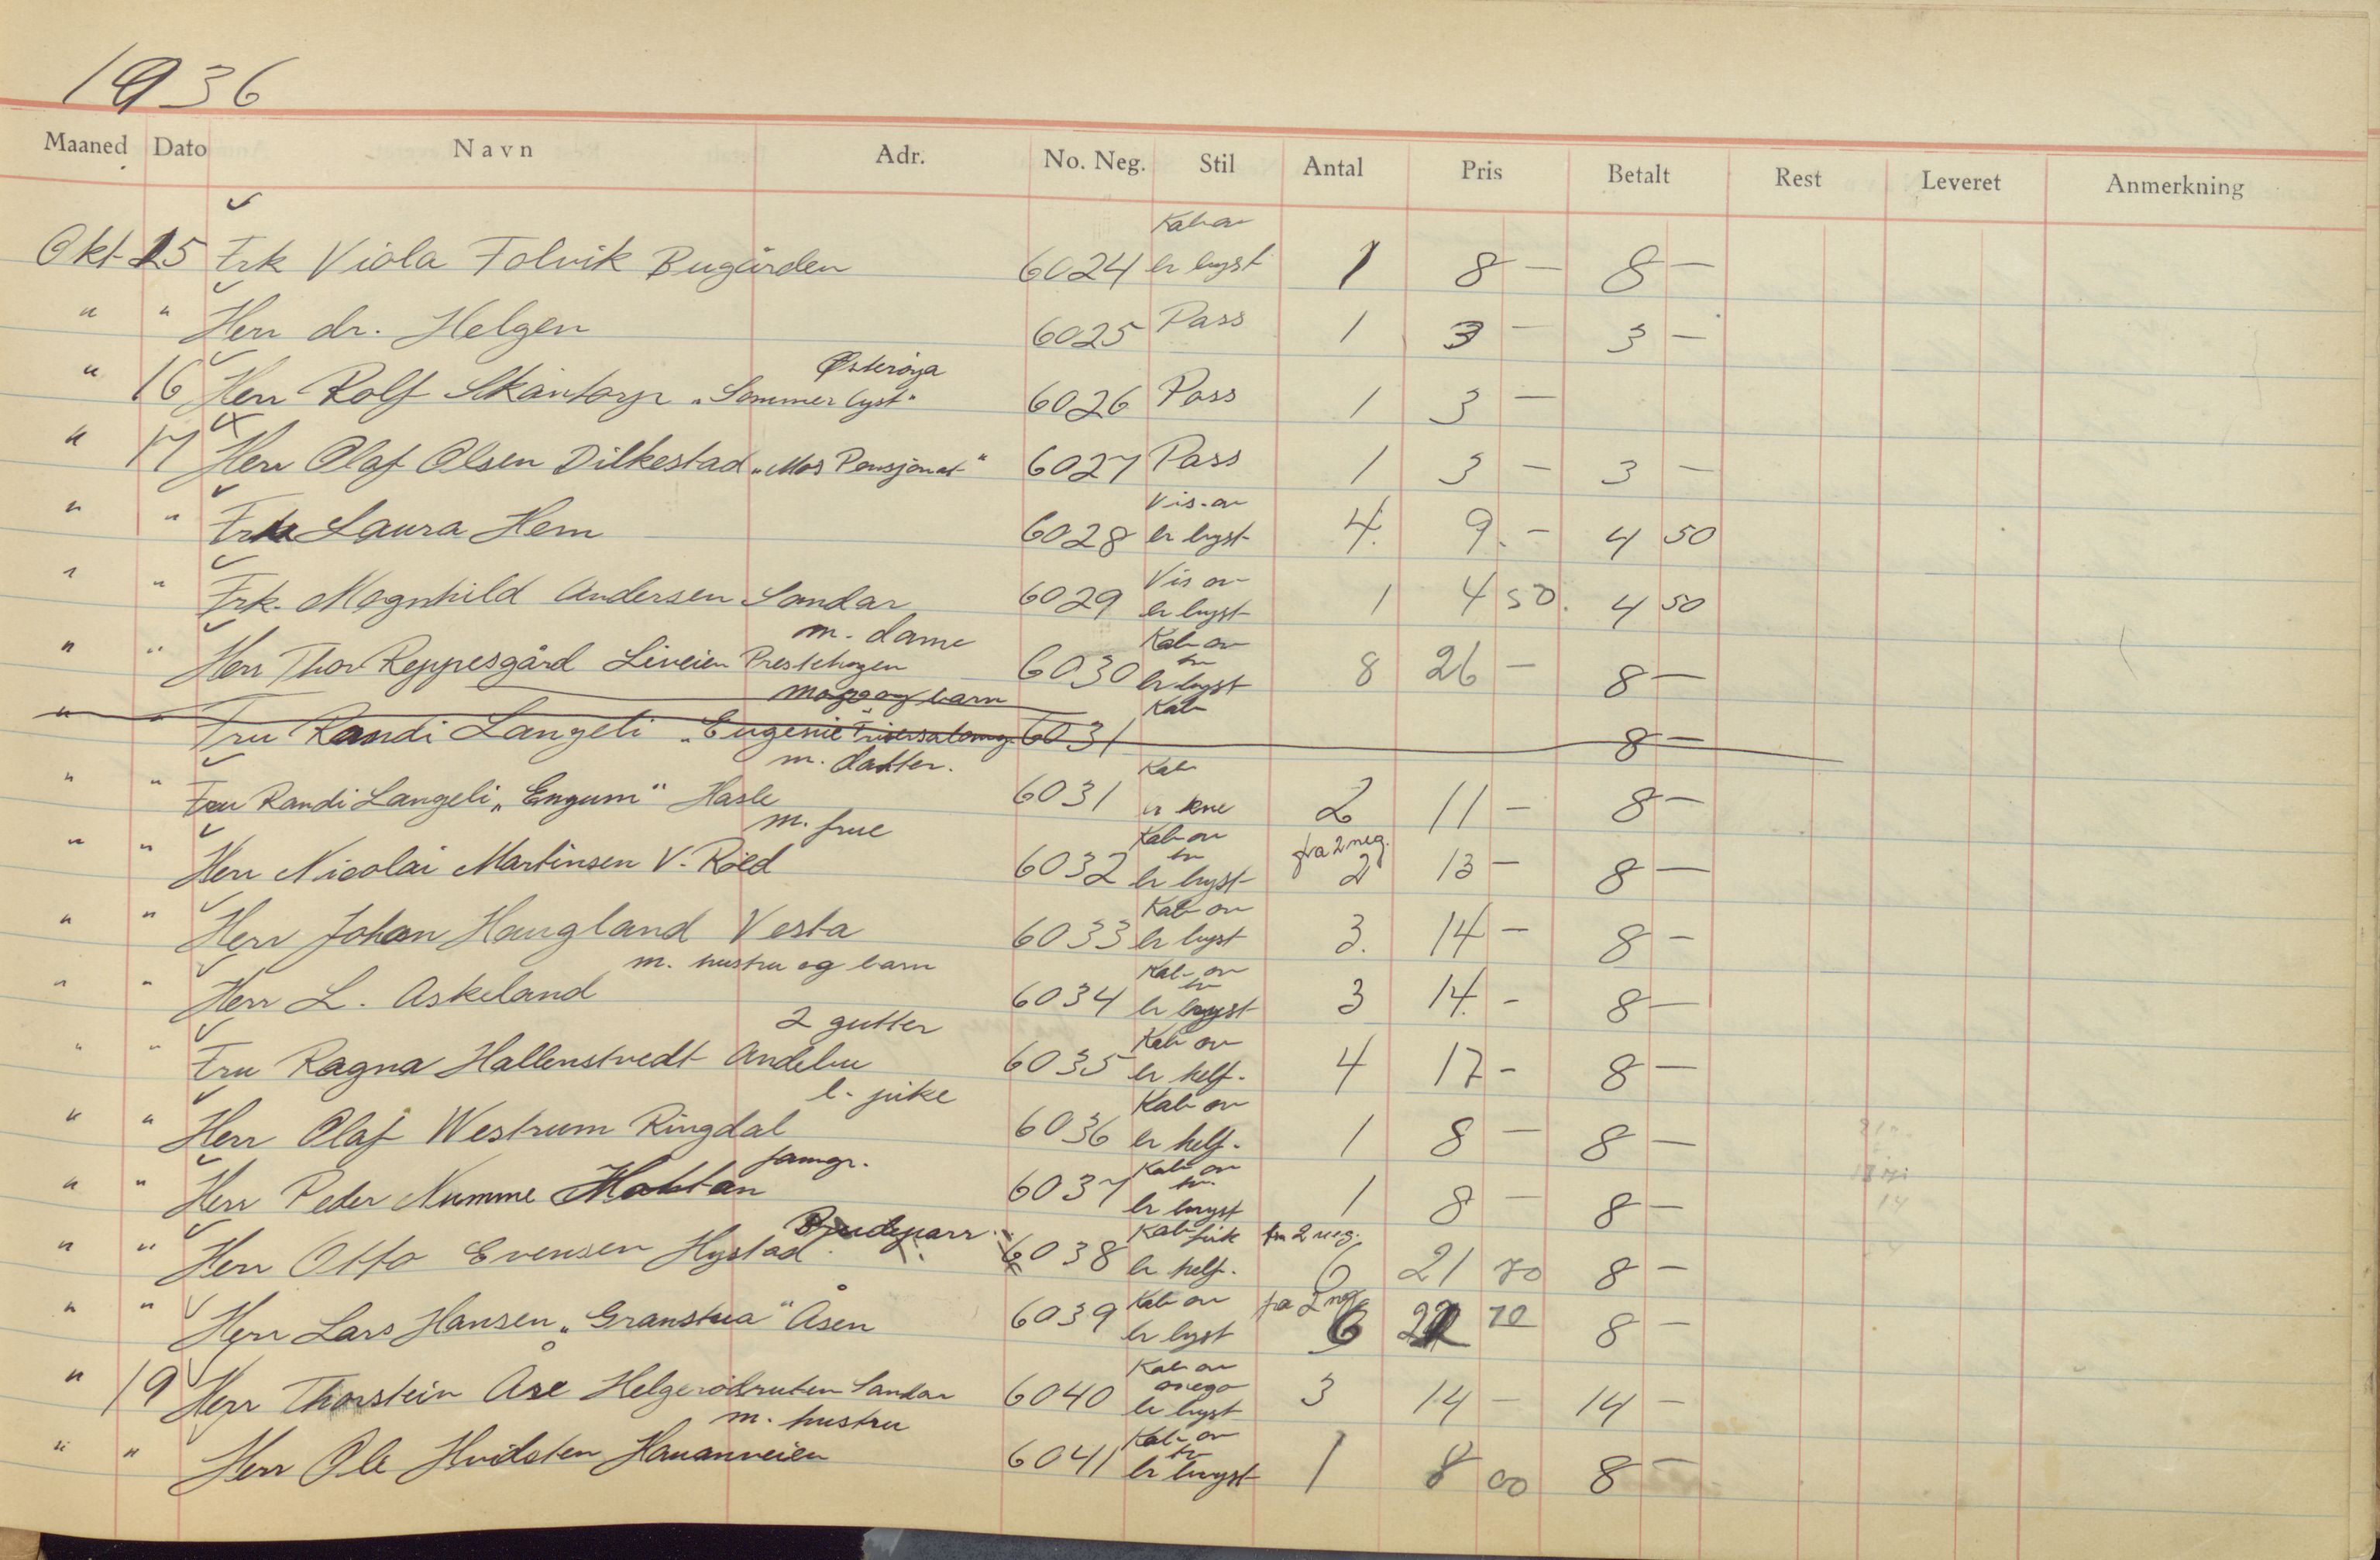 1936
Maaned Dato Navn Adr. No. Neg. Stil Antal Pris Betalt Rest Leveret Anmerkning
Kab on
Okt 15 Frk Viola Folvik Bugården 6024 br bryst 1 8 — 8 —
" " Herr dr. Helgen 6025 Pass 1 3 — 3 —
Østerøya
" 16 Herr Rolf Skantorp „Sommerlyst" 6026 Pass 1 3 —
" 17 Herr Olaf Olsen Dilkestad „Mos Pensjonat" 6027 Pass 1 3 — 3 —
Vis. on
" " Frk Laura Hem 6028 br bryst 4. 9. - 4 50
Vis on
" " Frk. Magnhild Andersen Sandar 6029 br bryst 1 4 50. 4 50
m. dame Kab on
" " Herr Thor Reppesgård Liveien Prestehagen 6030 br bryst 8 26 — 8 —
barn Kab
" " Fru Randi Langeli „Eugenie 6031 8 —
m. datter. Kab
" " Fru Randi Langeli „Engum" Hasle 6031 br kne 2 11 — 8 —
m. frue Kab on fra 2 neg.
" " Herr Nicolai Martinsen V. Röed 6032 br bryst 2 13 — 8 —
Kab on
" " Herr Johan Haugland Vesta 6033 br bryst 3. 14 — 8 —
m. hustru og barn Kab on
" " Herr L. Askeland 6034 br bryst 3 14. - 8 —
2 gutter Kab on
" " Fru Ragna Hallenstvedt Andebu 6035 br helf. 4 17 - 8 —
l. pike Kab on
" " Herr Olaf Westrum Ringdal 6036 br helf. 1 8 — 8 —
famgr. Kab on
" " Herr Peder Numme 6037 br bryst 1 8 — 8 —
Brudeparr Kab fra 2 neg.
" " Herr Otto Evensen Hystad 6038 br helf. 6 21 70 8 —
Kab on fra 2 neg
" " Herr Lars Hansen „Granstua" Åsen 6039 br bryst 6 70 8 —
Kab on
" 19 Herr Thorstein Åse Helgerödruten Sandar 6040 br bryst 3 14 — 14 —
m. hustru Kab on
" " Herr Ole Hvidsten Hauanveien 6041 br bryst 1 8 00 8 —